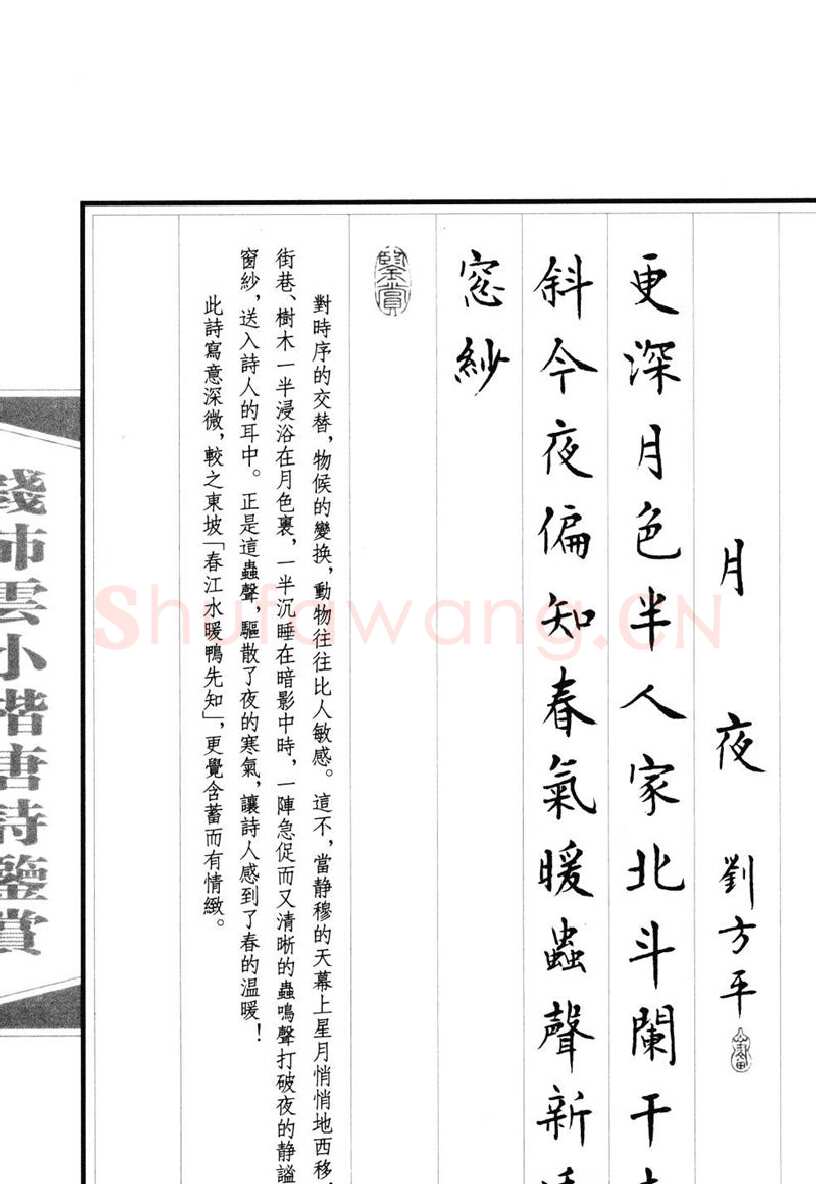 月 夜 劉方平
更深月色半人家北斗闌干
斜今夜偏知春氣暖蟲聲新
窓紗
鑒賞
對時序的交替，物候的變换，動物往往比人敏感。這不，當静穆的天幕上星月悄悄地西移，
街巷、樹木一半浸浴在月色裏，一半沉睡在暗影中時，一陣急促而又清晰的蟲鳴聲打破夜的静謐
窗紗，送入詩人的耳中。正是這蟲聲，驅散了夜的寒氣，讓詩人感到了春的温暖！
此詩寫意深微，較之東坡「春江水暖鴨先知」，更覺含蓄而有情緻。
錢沛雲小楷唐詩鑒賞
Shufawang.CN